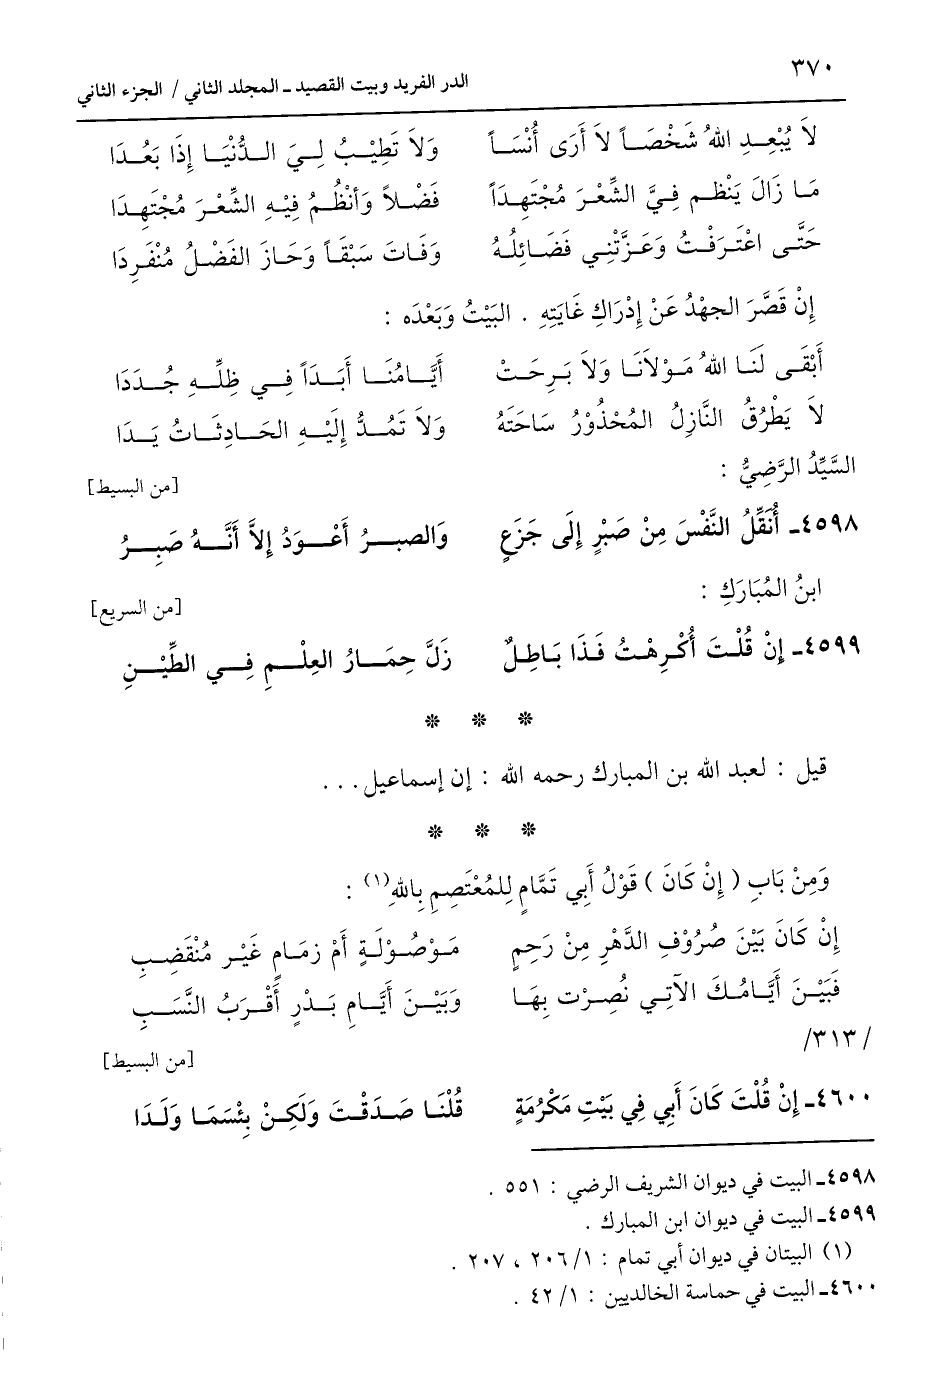 ٣٧٠
الدر الفريد وبيت القصيد ـ المجلد الثاني / الجزء الثاني
لاَ يُبْعِدِ اللهُ شَخْصَاً لاَ أَرَى أُنْسَاً وَلاَ تَطِيْبُ لِيَ الدُّنْيَا إِذَا بَعُدَا
مَا زَالَ يَنْظِم فِيَّ الشِّعْرَ مُجْتَهِدَاً فَضْلاً وَأَنْظُمُ فِيْهِ الشِّعْرَ مُجْتَهِدَا
حَتَّى اعْتَرَفْتُ وَعَزَّتْنِي فَضَائِلُهُ وَفَاتَ سَبْقَاً وَحَازَ الفَضْلُ مُنْفَرِدَا
إِنْ قَصَّرَ الجهْدُ عَنْ إِدْرَاكِ غَايَتِهِ . البَيْتُ وَبَعْدَه :
أَبْقَى لَنَا اللهُ مَوْلاَنَا وَلاَ بَرِحَتْ أَيَّامُنَا أَبَدَاً فِي ظِلِّهِ جُدَدَا
لاَ يَطْرُقُ النَّازِلُ المُحْذُوْرُ سَاحَتَهُ وَلاَ تَمُدُّ إِلَيْهِ الحَادِثَاتُ يَدَا
السَّيِّدُ الرَّضِيُّ :
[من البسيط]
٤٥٩٨ـ أُنَقِّلُ النَّفْسَ مِنْ صَبْرٍ إِلَى جَزَعٍ وَالصبرُ أَعْوَدُ إِلاَّ أَنَّهُ صَبِرُ
ابنُ المُبَارَكِ :
[من السريع]
٤٥٩٩ـ إِنْ قُلْتَ أُكْرِهْتُ فَذَا بَاطِلٌ زَلَّ حِمَارُ العِلْمِ فِي الطِّيْنِ
* * *
قيل : لعبد الله بن المبارك رحمه الله : إن إسماعيل . . .
* * *
وَمِنْ بَابِ ( إِنْ كَانَ ) قَوْلُ أَبِي تَمَّامٍ لِلمُعْتَصِمِ بِاللهِ(١) :
إِنْ كَانَ بَيْنَ صُرُوْفِ الدَّهْرِ مِنْ رَحِمٍ مَوْصُوْلَةٍ أَمْ زِمَامٍ غَيْر مُنْقَضِبِ
فَبَيْنَ أَيَّامُكَ الآتِي نُصِرْتَ بِهَا وَبَيْنَ أَيَّامِ بَدْرٍ أَقْرَبُ النَّسَبِ
/٣١٣/
[من البسيط]
٤٦٠٠ـ إِنْ قُلْتَ كَانَ أَبِي فِي بَيْتِ مَكْرُمَةٍ قُلْنَا صَدَقْتَ وَلَكِنْ بِئْسَمَا وَلَدَا
٤٥٩٨ـ البيت في ديوان الشريف الرضي : ٥٥١ .
٤٥٩٩ـ البيت في ديوان ابن المبارك .
(١) البيتان في ديوان أبي تمام : ٢٠٦/١ ، ٢٠٧ .
٤٦٠٠ـ البيت في حماسة الخالديين : ٤٢/١ .